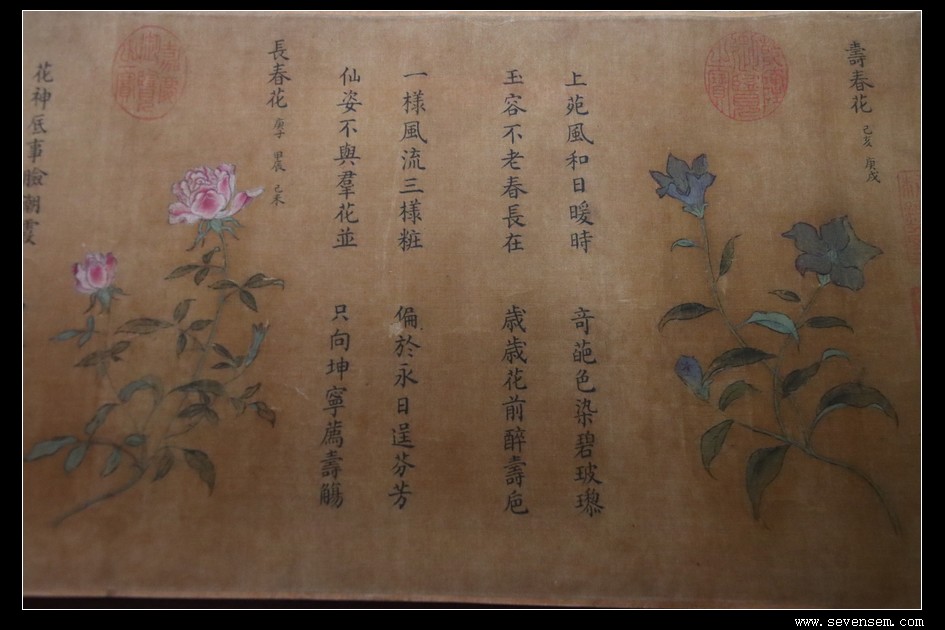 壽春花 己亥 庚戌
上苑風和日暖時 奇葩色染碧玻瓈
玉容不老春長在 歲歲花前醉壽巵
長春花 庚子 甲辰 己未
一樣風流三樣粧 偏於永日逞芬芳
仙姿不與羣花並 只向坤寧薦壽觴
花神底事臉潮霞
www.sevensem.com